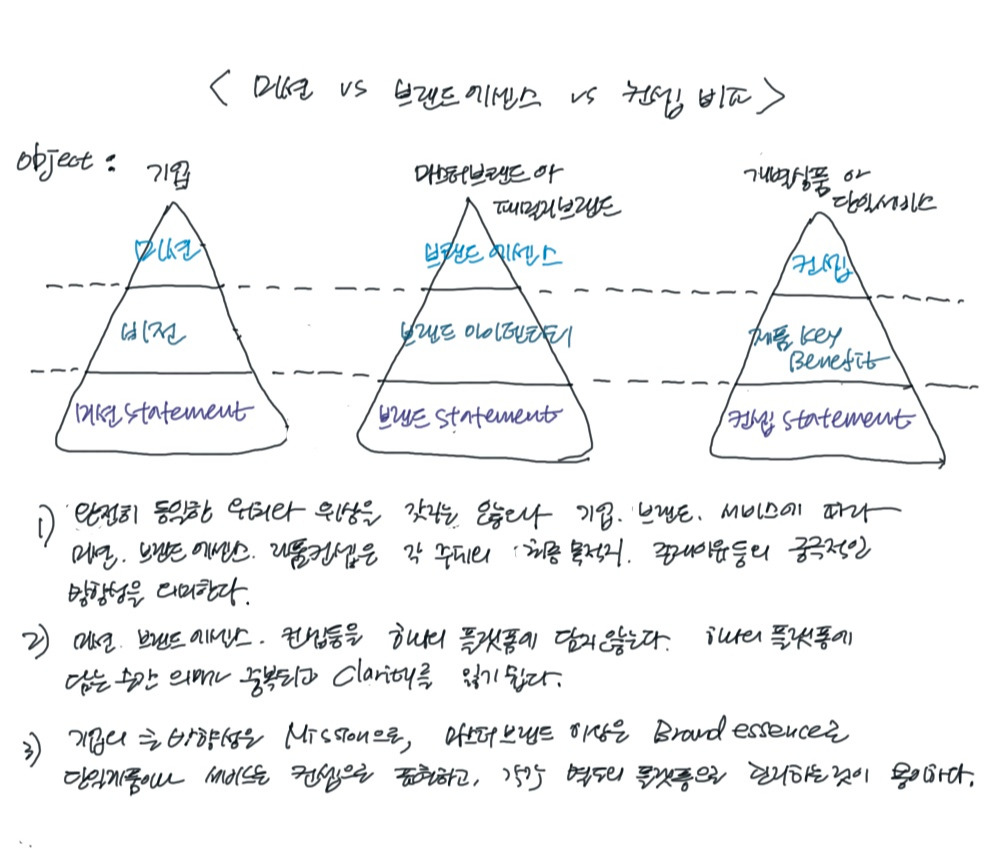 < 미션 vs 브랜드에센스 vs 컨셉 비교 >
object : 기업 마스터브랜드 or 패밀리브랜드 개별상품 or 단일서비스
미션 브랜드 에센스 컨셉
비전 브랜드 아이덴티티 제품 key Benefit
미션 statement 브랜드 statement 컨셉 statement
1) 완전히 동일한 위상을 갖지는 않으나 기업. 브랜드. 서비스에 따라
미션. 브랜드에센스. 제품컨셉은 각 주체의 최종 목적지. 존재이유등의 궁극적인
방향성을 의미한다.
2) 미션. 브랜드에센스. 컨셉등을 하나의 플랫폼에 담지않는다. 하나의 플랫폼에
담는 순간 의미가 중복되고 Clarity를 잃기 쉽다.
3) 기업의 큰 방향성은 Mission으로, 마스터브랜드 이상은 Brand essence로
단일제품이나 서비스는 컨셉으로 표현하고, 각각 별도의 플랫폼으로 관리하는것이 용이하다.